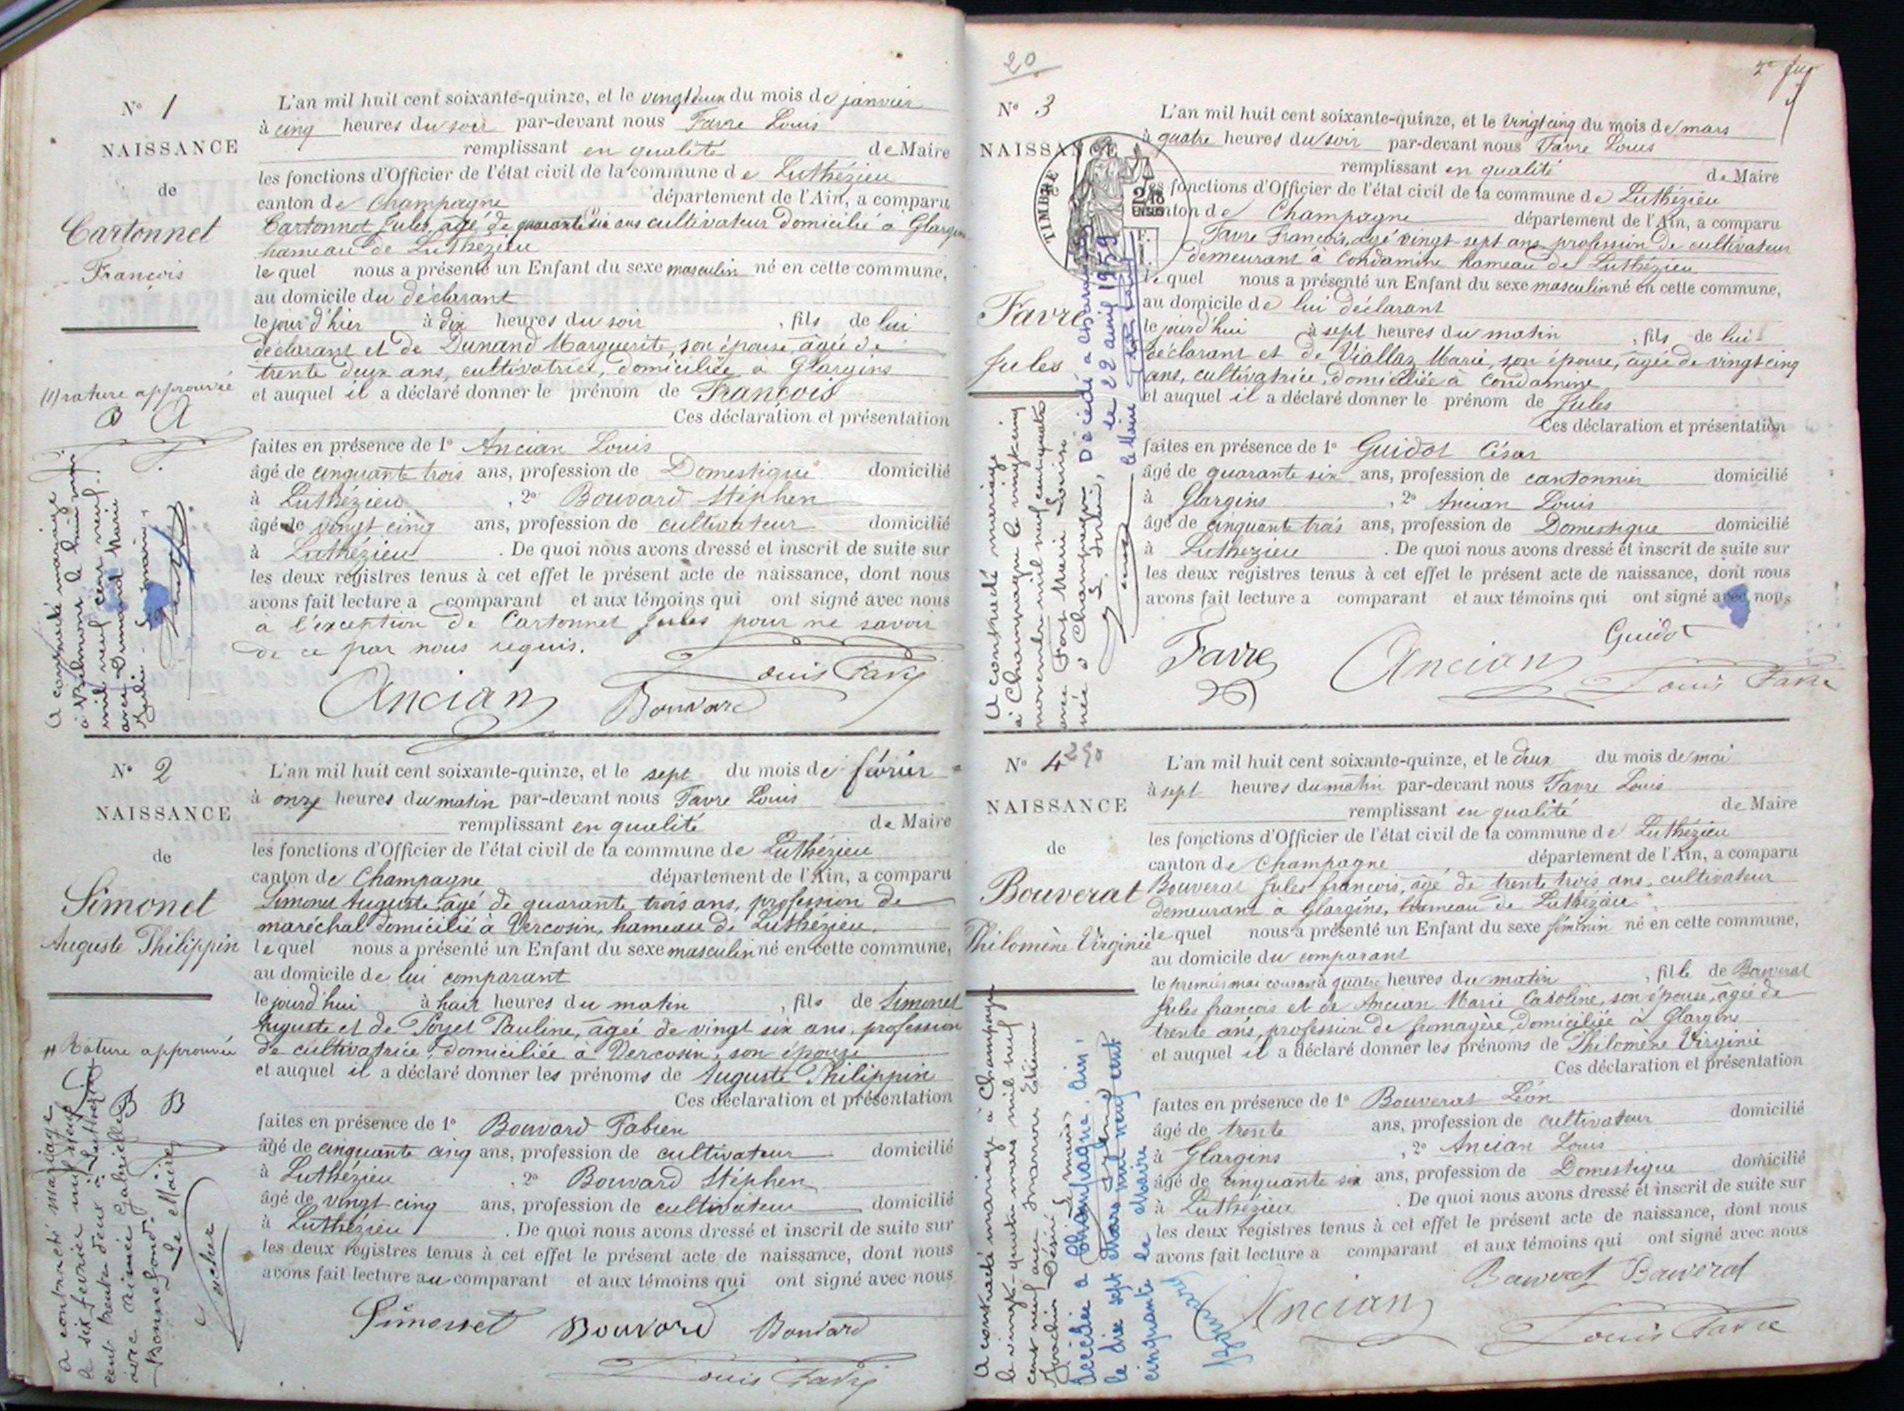 N° 1
NAISSANCE
de
Cartonnet
François
(1) rature approuvée
B A
A contracté mariage
à Belmont le huit mai
mil neuf cent neuf
avec Dumand Marie
Julie. Le maire,
L'an mil huit cent soixante-quinze, et le vingt deux du mois de janvier
à cinq heures du soir par-devant nous Favre Louis
remplissant en qualité de Maire
les fonctions d'Officier de l'état civil de la commune de Luthézieu
canton de Champagne département de l'Ain, a comparu
Cartonnet Jules, âgé de quarante six ans cultivateur domicilié à Glargins
hameau de Luthézieu
lequel nous a présenté un Enfant du sexe masculin né en cette commune,
au domicile du déclarant
le jour d'hier à dix heures du soir , fils de lui
déclarant et de Dunand Marguerite, son épouse, âgée de
trente deux ans, cultivatrice, domiciliée à Glargins
et auquel il a déclaré donner le prénom de François
Ces déclaration et présentation
faites en présence de 1° Ancian Louis
âgé de cinquante trois ans, profession de Domestique domicilié
à Luthézieu , 2° Bouvard Stéphen
âgé de vingt cinq ans, profession de cultivateur domicilié
à Luthézieu . De quoi nous avons dressé et inscrit de suite sur
les deux registres tenus à cet effet le présent acte de naissance, dont nous
avons fait lecture a comparant et aux témoins qui ont signé avec nous
à l'exception de Cartonnet Jules pour ne savoir
de ce par nous requis.
Ancian Bouvard Louis Favre
N° 2
NAISSANCE
de
Simonet
Auguste Philippin
Rature approuvée
B B
A contracté mariage
le six février mil neuf
cent trente deux à Luthézieu
avec Aimée Gabrielle
Bonnefond.
Le Maire
L'an mil huit cent soixante-quinze, et le sept du mois de février
à onze heures du matin par-devant nous Favre Louis
remplissant en qualité de Maire
les fonctions d'Officier de l'état civil de la commune de Luthézieu
canton de Champagne département de l'Ain, a comparu
Simonet Auguste âgé de quarante trois ans, profession de
maréchal domicilié à Vercosin, hameau de Luthézieu.
lequel nous a présenté un Enfant du sexe masculin né en cette commune,
au domicile de lui comparant
le jourd'hui à huit heures du matin , fils de Simonet
Auguste et de Poyet Pauline, âgée de vingt six ans, profession
de cultivatrice, domiciliée à Vercosin, son épouse
et auquel il a déclaré donner les prénoms de Auguste Philippin
Ces déclaration et présentation
faites en présence de 1° Bouvard Fabien
âgé de cinquante cinq ans, profession de cultivateur domicilié
à Luthézieu , 2° Bouvard Stéphen
âgé de vingt cinq ans, profession de cultivateur domicilié
à Luthézieu . De quoi nous avons dressé et inscrit de suite sur
les deux registres tenus à cet effet le présent acte de naissance, dont nous
avons fait lecture au comparant et aux témoins qui ont signé avec nous
Simonet Bouvard Bouvard
Louis Favre
20
N° 3
NAISSANCE
TIMBRE
Favre
Jules
A contracté mariage
à Champagne le vingt-cinq
novembre mil neuf cent quatre
avec Marie Louise
née à Champagne
Décédé à
le 22 avril 1959
le Maire
L'an mil huit cent soixante-quinze, et le vingt cinq du mois de mars
à quatre heures du soir par-devant nous Favre Louis
remplissant en qualité de Maire
les fonctions d'Officier de l'état civil de la commune de Luthézieu
canton de Champagne département de l'Ain, a comparu
Favre François, âgé vingt sept ans profession de cultivateur
demeurant à Condamine hameau de Luthézieu
lequel nous a présenté un Enfant du sexe masculin né en cette commune,
au domicile de lui déclarant
le jourd'hui à sept heures du matin , fils de lui
déclarant et de Viallaz Marie, son épouse, âgée de vingt cinq
ans, cultivatrice, domiciliée à Condamine
et auquel il a déclaré donner le prénom de Jules
Ces déclaration et présentation
faites en présence de 1° Guidot César
âgé de quarante six ans, profession de cantonnier domicilié
à Glargins , 2° Ancian Louis
âgé de cinquante trois ans, profession de Domestique domicilié
à Luthézieu . De quoi nous avons dressé et inscrit de suite sur
les deux registres tenus à cet effet le présent acte de naissance, dont nous
avons fait lecture a comparant et aux témoins qui ont signé avec nous
Favre Ancian Guidot
Louis Favre
N° 4 290
NAISSANCE
de
Bouverat
Philomène Virginie
A contracté mariage à Champagne
le vingt-quatre mars mil neuf
cent neuf avec Etienne
Désiré
Le maire,
Décédée à Champagne, Ain,
le dix sept Mars mil neuf cent
cinquante
le Maire
L'an mil huit cent soixante-quinze, et le deux du mois de mai
à sept heures du matin par-devant nous Favre Louis
remplissant en qualité de Maire
les fonctions d'Officier de l'état civil de la commune de Luthézieu
canton de Champagne département de l'Ain, a comparu
Bouverat Jules françois, âgé de trente trois ans, cultivateur
demeurant à Glargins, hameau de Luthézieu
lequel nous a présenté un Enfant du sexe féminin né en cette commune,
au domicile du comparant
le premier mai courant à quatre heures du matin , fille de Bouverat
Jules françois et de Ancian Marie Caroline, son épouse, âgée de
trente ans, profession de fromagère, domiciliée à Glargins
et auquel il a déclaré donner les prénoms de Philomène Virginie
Ces déclaration et présentation
faites en présence de 1° Bouverat Léon
âgé de trente ans, profession de cultivateur domicilié
à Glargins , 2° Ancian Louis
âgé de cinquante six ans, profession de Domestique domicilié
à Luthézieu . De quoi nous avons dressé et inscrit de suite sur
les deux registres tenus à cet effet le présent acte de naissance, dont nous
avons fait lecture a comparant et aux témoins qui ont signé avec nous
Bouverat Bouverat
Ancian Louis Favre